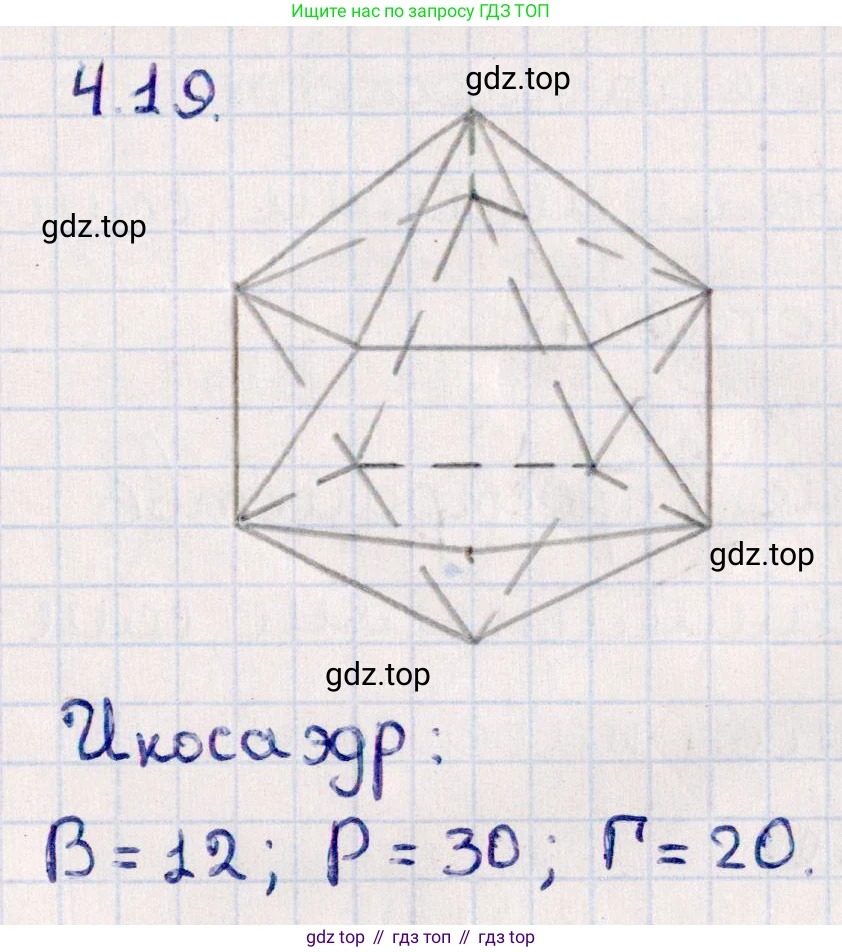 Ищите нас по запросу ГДЗ ТОП
4.19.
gdz.top
gdz.top
gdz.top
gdz.top
Икосаэдр:
В = 12; Р = 30; Г = 20.
gdz top // гдз топ // gdz top